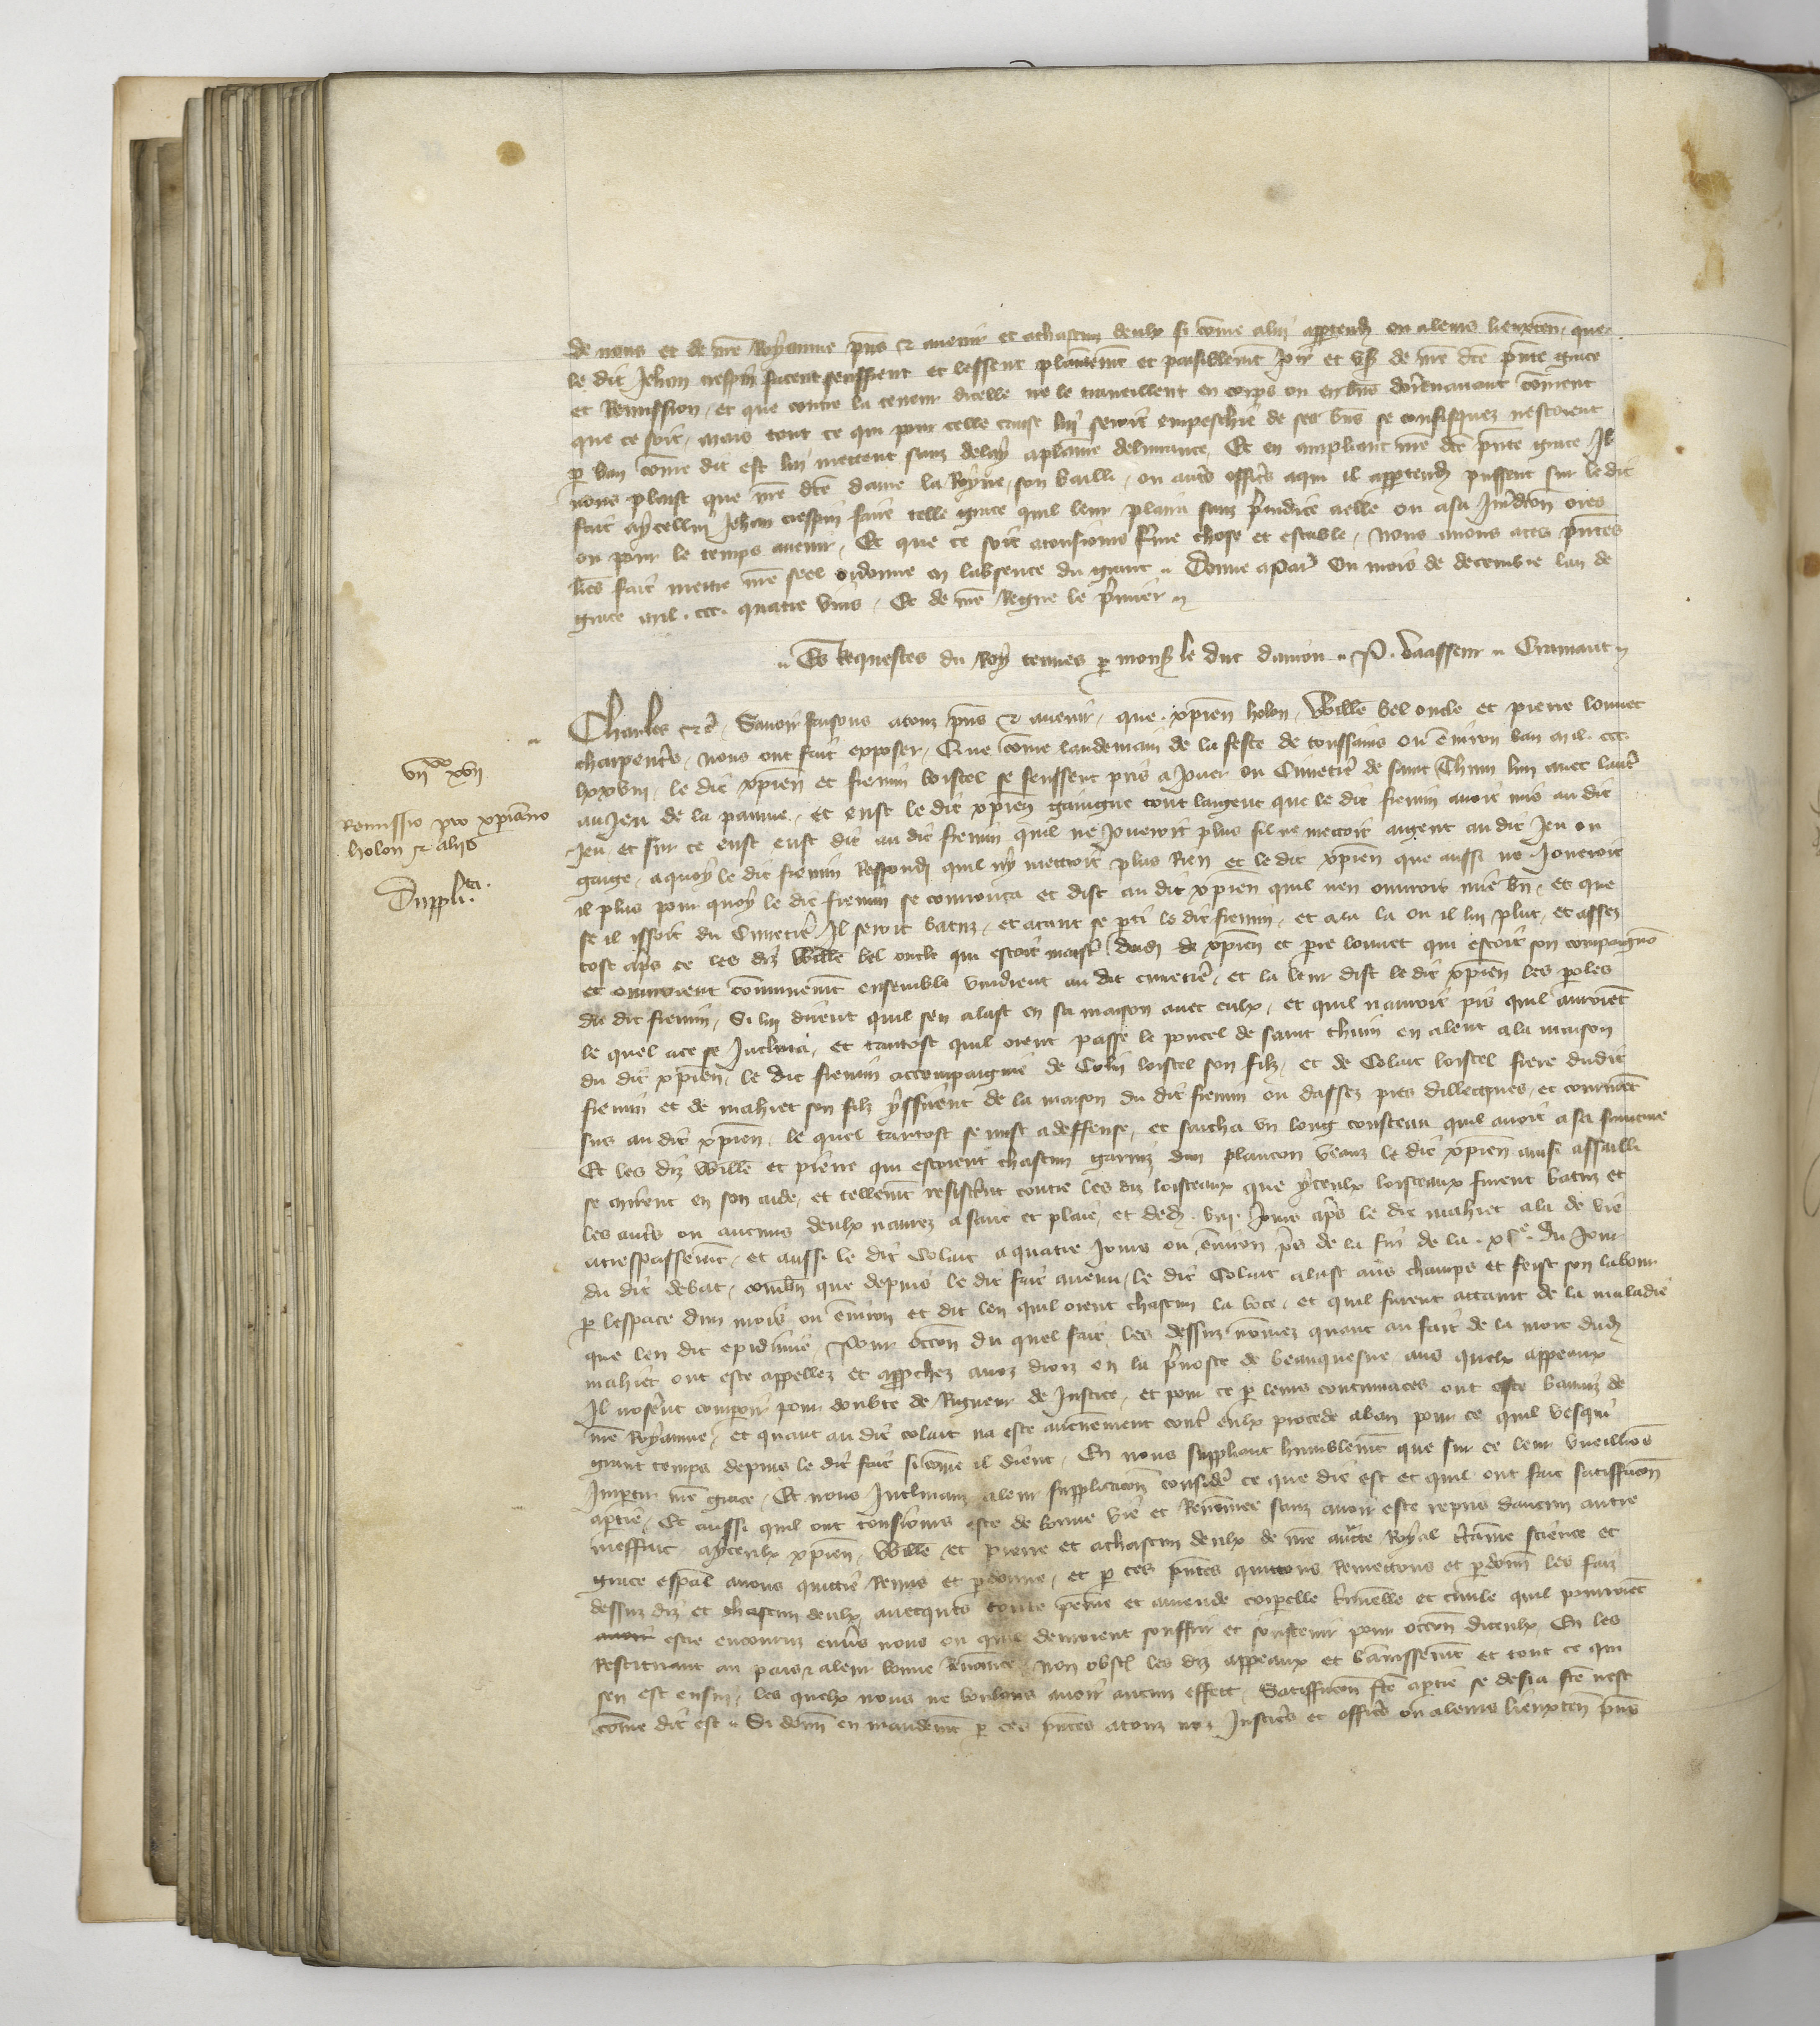 de nous et de nre Royaume pns & avenir et a chascun deulx si come a luy appartendra ou a leurs lieuxten que
le dit Jehan crespin facent seuffrent et lessent plainemt et paisiblemt joir et user de nre dce pnte grace
et Remission, et que contre la teneur dicelle ne le traveillent en corps ou en biens dorenavant coment
que ce soit, mais tout ce qui pour celle cause luy seroit empeschie de ses bns se confisquez nestoient
p ban come dit est luy mettent sanz delay a plaine delivrance, Et en ampliant nre dce pnte grace Il
nous plaist que nre dce dame la Royne, son bailli, ou autres officrs a qui il appartendra puissent sur le dit
fait a ycelluy Jehan crespin faire telle grace quil leur plaira sanz preiudice delle ou a sa Juridcon ores
ou pour le temps avenir, Et que ce soit a tousiours ferme chose et estable, Nous avons a ces pntes
lres fait mettre nre seel ordonne en labsence du grant. Donne a Paris Ou mois de decembre lan de
grace mil. ccc. quatre vins, Et de nre Regne le premier
Es Requestes du Roy tenues p monsr le duc daniou. P. vaasseur. Cramaut
Charles &c. Savoir faisons a touz pns & avenir, que xpien holon, Wille bel oncle et pierre louvet
charpentrs, nous ont fait exposer, Que come landemain de la feste de toussains ou environ lan mil. ccc.
lxxviii, le dit xpien et fremin loistel se feussent pris a Jouer ou Cimetire de saint Thuin lun avec lautre
au Jeu de la paume, et eust le dit xpien gaingne tout largent que le dit fremin avoit mis au dit
Jeu et sur ce eust eust dit au dit fremin quil ne Joueroit plus sil ne mettoit argent au dit Jeu ou
gaige, a quoy le dit fremin Respondi quil ny mettroit plus Rien et le dit xpien que aussi ne Joueroit
il plus pour quoy le dit fremin se courouca et dist au dit xpien quil nen ouvroit mie bn, et que
se il issoit du Cimetire Il seroit batuz, et atant se parti le dit fremin, et ala la ou il luy plut, et assez
tost aprs ce les diz Wille bel oncle qui estoit maistr dudit xpien et pre louvet qui estoit son compaignon
et ouvroient communemt ensemble vindrent au dit cimetire, et la leur dist le dit xpien les paroles
du dit fremin, Si luy dirent quil sen alast en sa maison avec eulx, et quil nauroit pis quil auroient
le quel a ce se Inclina, et tantost quil orent passe le poncel de saint thuin en alent a la maison
du dit xpien, le dit fremin accompaignie de Colin loistel son filz, et de Colart loistel frere dudit
fremin et de mahiet son filz yssirent de la maison du dit fremin ou dassez pres dillecques, et coururent
sus au dit xpien, le quel tantost se mist a deffense, et sacha un long coustean quil avoit a sa sainture
Et les diz Wille et pierre qui estoient chascun garniz dun plancon veans le dit xpien ainsi assailli
se mirent en son aide, et tellemt resisterent contre les diz loisteaux que yceulx loisteaux furent batuz et
les autrs ou aucuns deulx navrez a sanc et plaie, et dedens viii. Jours aprs le dit mahiet ala de vie
a trespassemt, et aussi le dit Colart a quatre Jours ou environ prs de la fin de la xle du Jour
du dit debat, combn que depuis le dit fait avenu, le dit Colart alast aus champs et feist son labour
p lespace dun mois ou environ et dit len quil orent chascun la boce, et quil furent attaint de la maladie
que len dit epidimie, Pour occon du quel fait les dessuz nomez quant au fait de la mort dudit
mahiet ont este appellez et approchez a noz droiz en la prevoste de beauquesne aus quelx appeaux
Il noserent comparoir pour doubte de Rigueur de Justice, et pour ce p leurs contumaces ont este baniz de
nre Royaume, et quant au dit colart na este aucunement contre eulx procede a ban pour ce quil vesqui
grant temps depuis le dit fait si come il dient, En nous suppliant humblemt que sur ce leur vueillions
Impartir nre grace, Et nous Inclinanz a leur supplicacion consider ce que dit est et quil ont fait satisfaccon
a partie, Et aussi quil ont tousiours este de bonne vie et Renommee sanz avoir este repris daucun autre
meffait, a yceulx xpien, Wille et pierre et a chascun deulx de nre aucte Royal certaine science et
grace espal avons quittie Remis et pardonne, et p ces pntes quittons Remettons et pardonns les faiz
dessuz diz et chascun deulx avecques toute peine et amende corporelle criminelle et civile quil pourroient
avoir estre encouruz envers nous ou quil devroient souffrir et soustenir pour occon diceulx, En les
Restituant au pais & a leur bonne Renomee, Non obst les diz appeaux et banissemt et tout ce qui
sen est ensui, les quelx nous ne voulons avoir aucun effect, Satisfaccon fte a partie se desia fte nest
come dit est. Si donns en mandemt p ces pntes a touz noz Justicrs et officrs ou a leurs lieuxten pns
viixx xvii
Remissio pro xpiano
holon & aliis
Duppli.ta